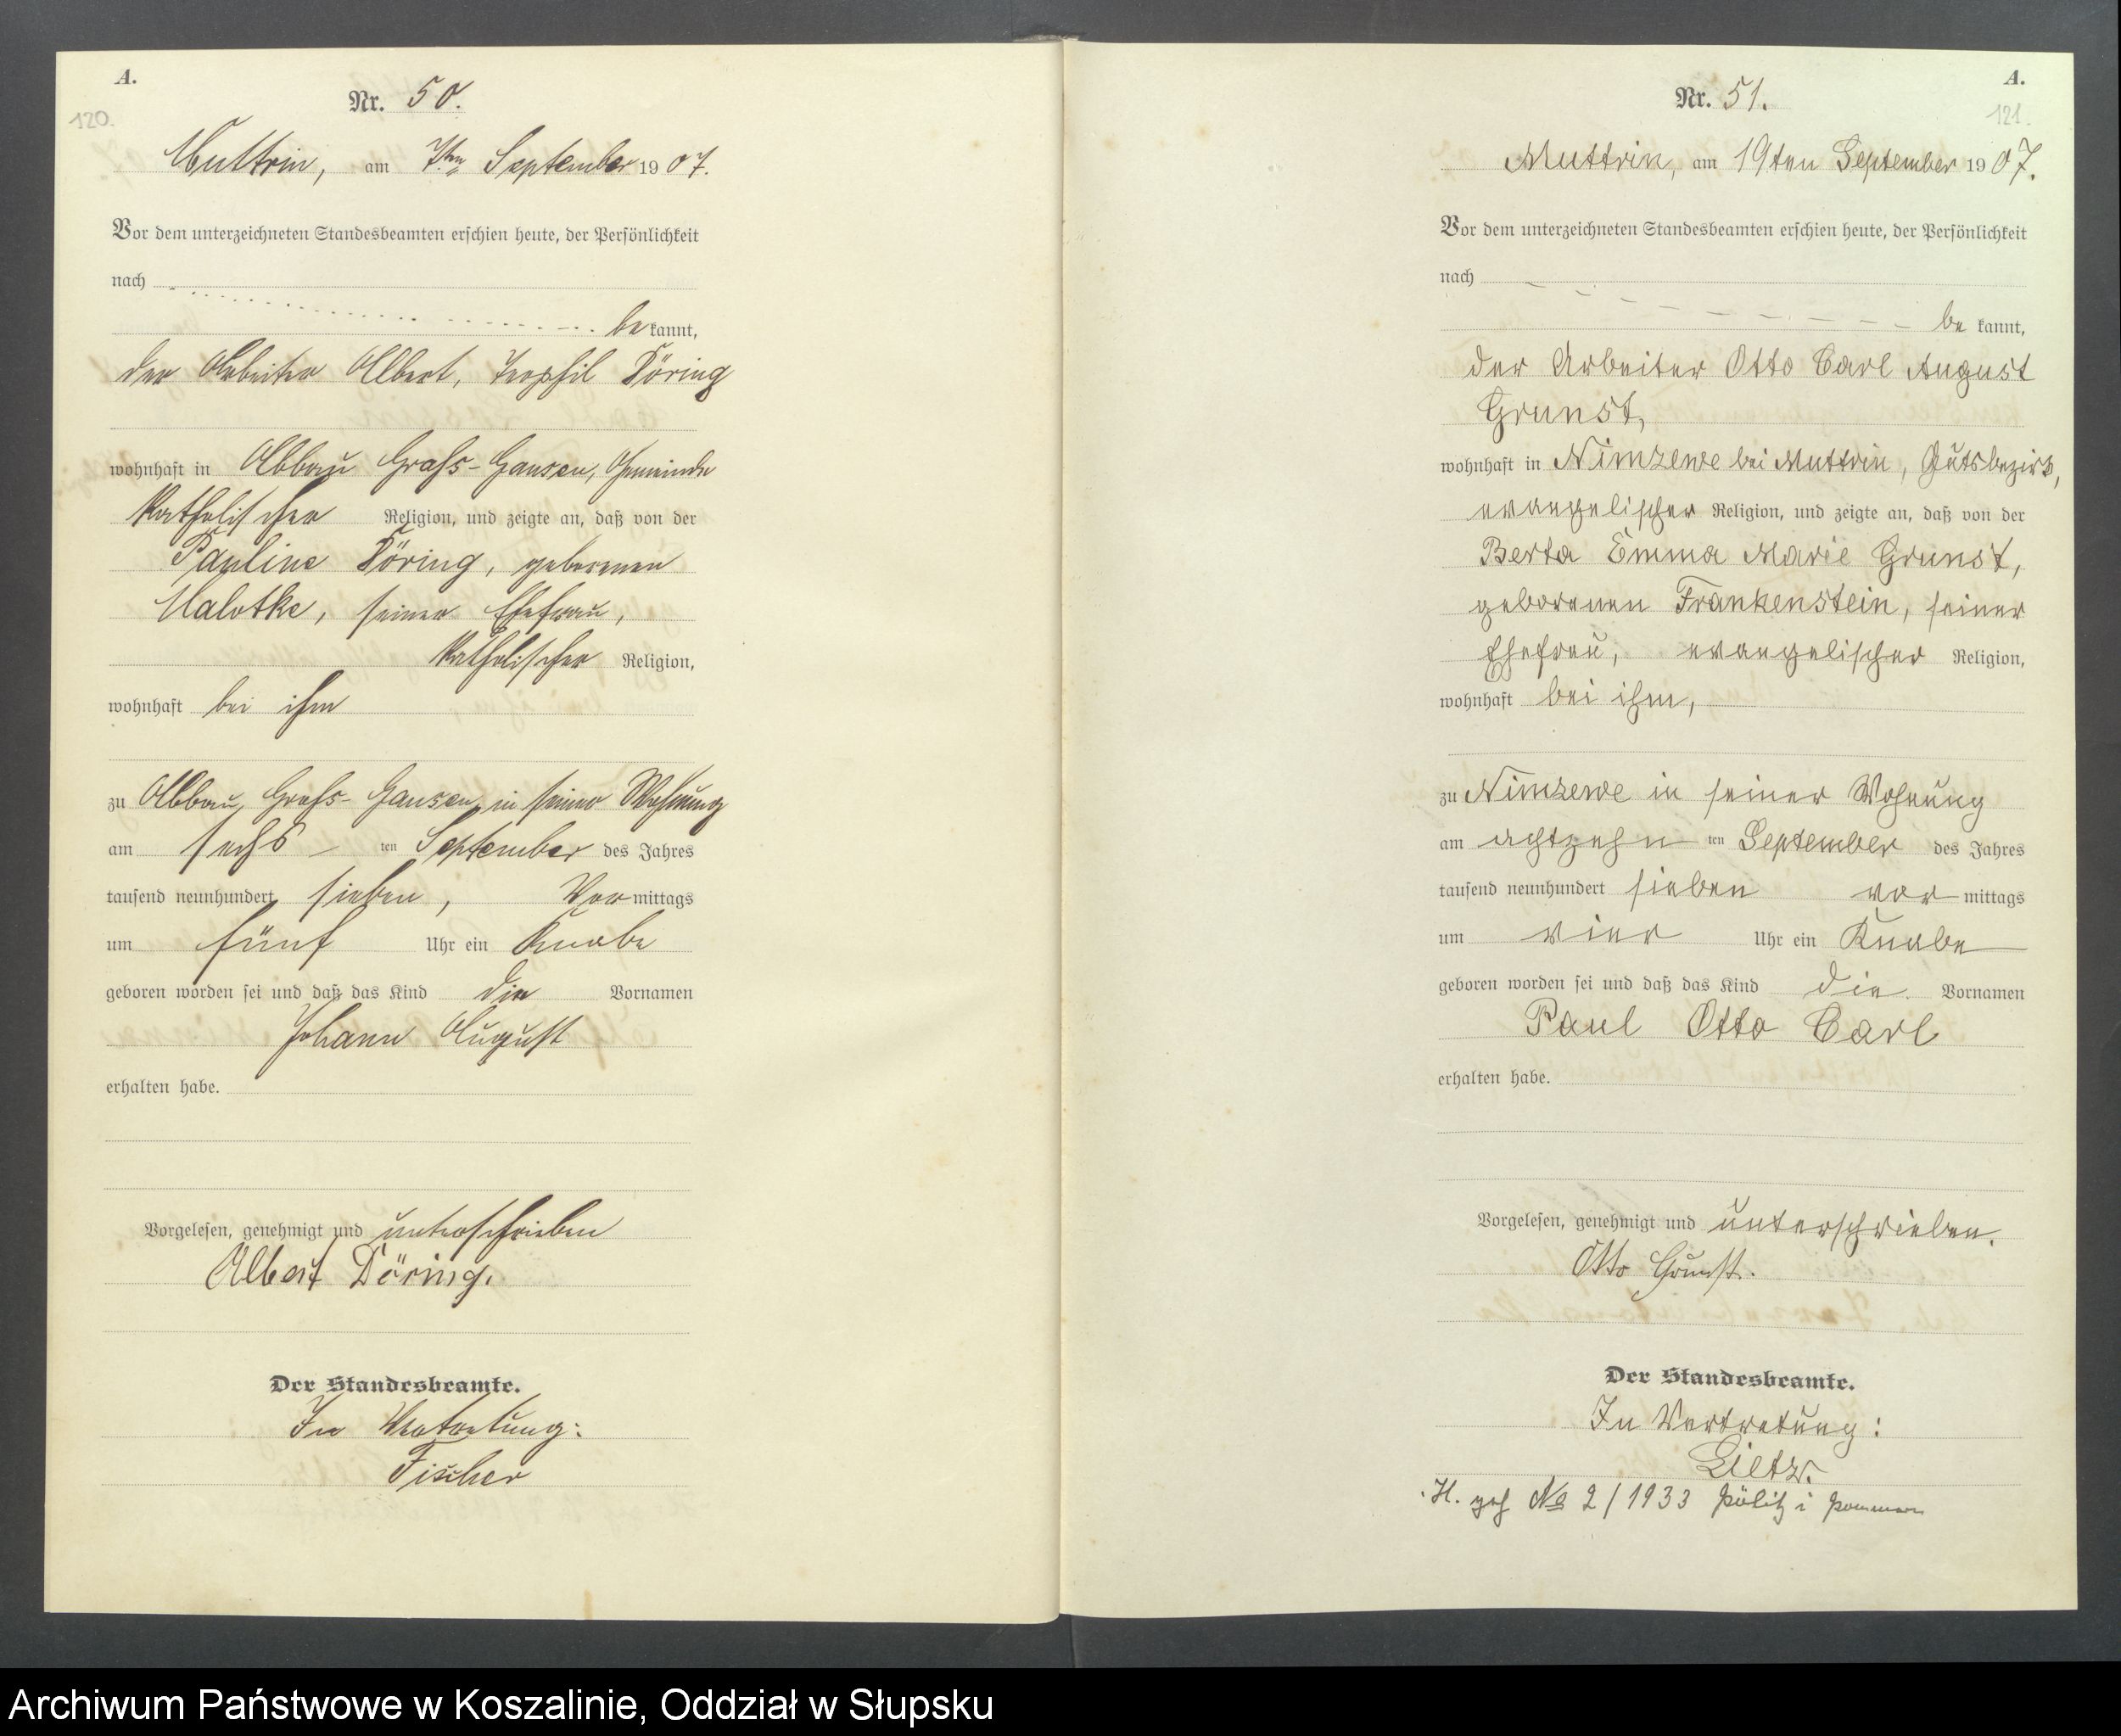 A.
120.
Nr. 50.
Muttrin, am 7ten September 1907.
Vor dem unterzeichneten Standesbeamten erschien heute, der Persönlichkeit
nach
bekannt,
der Arbeiter Albert, Teophil Döring
wohnhaft in Abbau Groß-Gansen, Gemeinde
katholischer Religion, und zeigte an, daß von der
Pauline Döring, geborenen
Malotke, seiner Ehefrau,
katholischer Religion,
wohnhaft bei ihm
zu Abbau Groß-Gansen, in seiner Wohnung
am sechs ten September des Jahres
tausend neunhundert sieben, Vormittags
um fünf Uhr ein Knabe
geboren worden sei und daß das Kind die Vornamen
Johann August
erhalten habe.
Vorgelesen, genehmigt und unterschrieben
Albert Döring.
Der Standesbeamte.
In Vertretung:
Fischer
A.
121.
Nr. 51.
Muttrin, am 19ten September 1907.
Vor dem unterzeichneten Standesbeamten erschien heute, der Persönlichkeit
nach
bekannt,
der Arbeiter Otto Carl August
Grunst,
wohnhaft in Nimzewe bei Muttrin, Gutsbezirk,
evangelischer Religion, und zeigte an, daß von der
Berta Emma Marie Grunst,
geborenen Frankenstein, seiner
Ehefrau, evangelischer Religion,
wohnhaft bei ihm,
zu Nimzewe in seiner Wohnung
am achtzehn ten September des Jahres
tausend neunhundert sieben vormittags
um vier Uhr ein Knabe
geboren worden sei und daß das Kind die Vornamen
Paul Otto Carl
erhalten habe.
Vorgelesen, genehmigt und unterschrieben.
Otto Grunst.
Der Standesbeamte.
In Vertretung:
Lietz.
H. gef No 2/1933 Pölitz i Pommern
Archiwum Państwowe w Koszalinie, Oddział w Słupsku